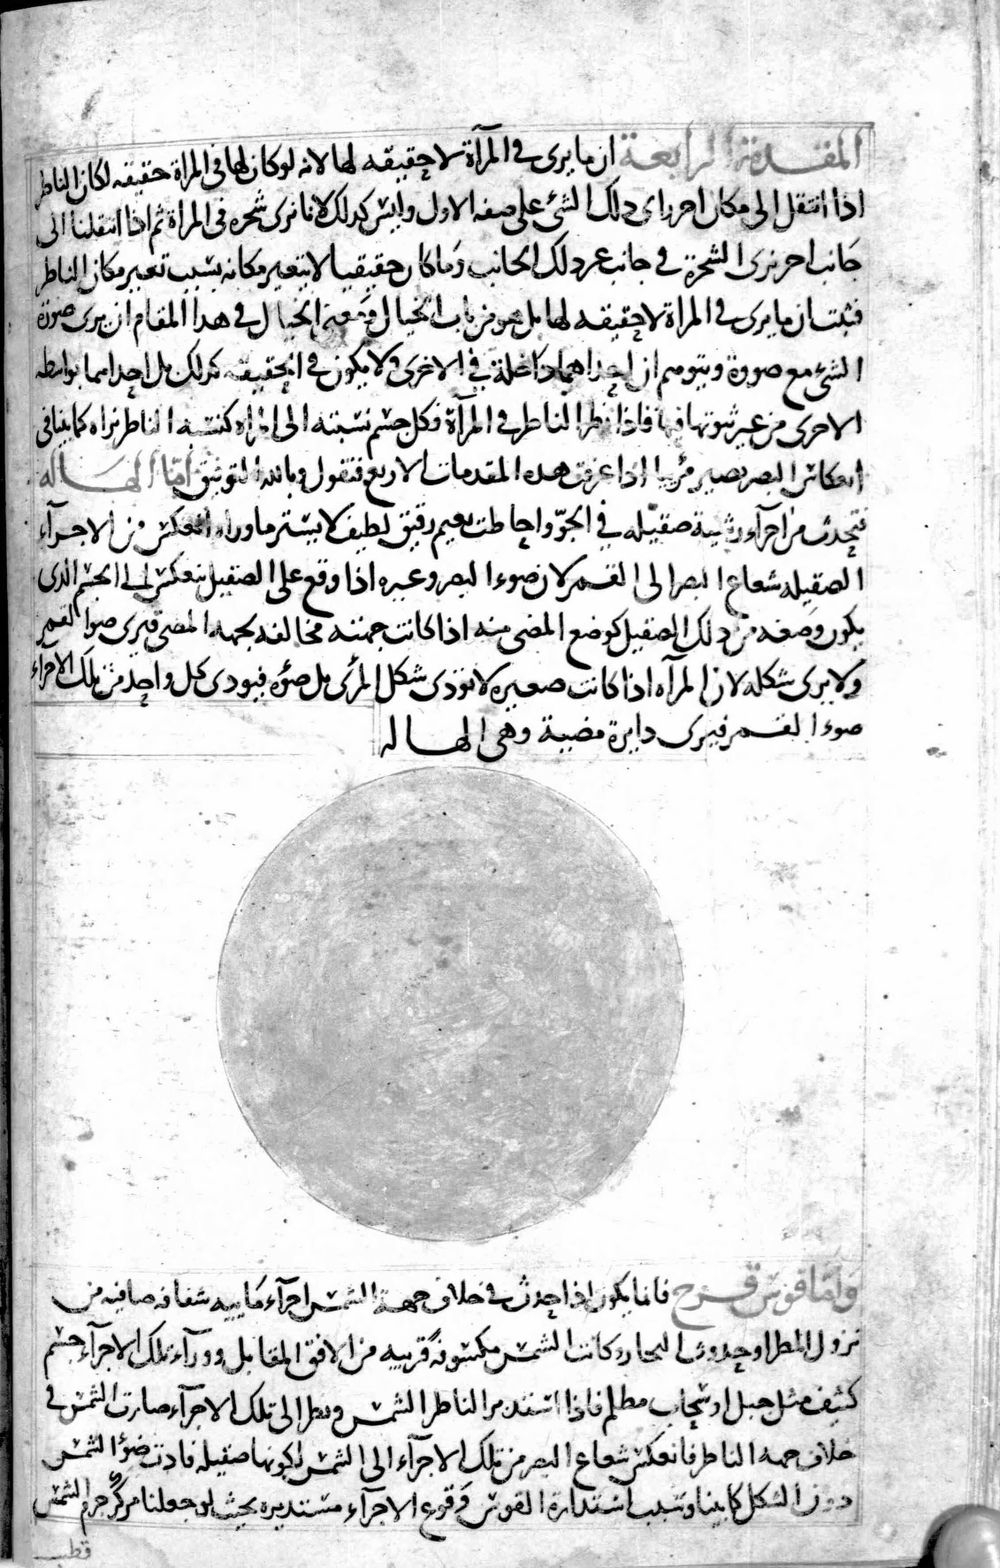 المقدمة الرابعة ان ما يرى في المرآة لا حقيقه لها لانه لو كان لها فى المراة حقيقه لكان الناظر
اذا انتقل الى مكان اخر راى ذلك الشئ على صفه الاول وليس كذلك لانا نرى شجره فى المراة ثم اذا انتقلنا الى
جانب اخر نرى الشجرة في جانب غير ذلك الجانب وما كان حقيقيا لا يتغير مكانه بسبب تغير مكان الناظر
فثبت ان ما يرى في المراة لا حقيقه لها بل هو من باب الخيال ومعنى الخيال في هذا المقام ان يرى صورة
الشئ مع صورة ويتوهم ان احداهما داخلة في الاخرى ولا يكون في الحقيقه كذلك بل احداهما بواسطه
الاخرى من غير ثبوتها فيها فاذا نظر الناظر في المرآة فكل جسم نسبته الى المراه كنسبه الناظر نراه كما
انعكاس البصر يصير مرئيا اذا عرفت هذه المقدمات الاربع فنقول وبالله التوفيق اما الهاله
فتحدث من اجزآء رشية صقيله في الجو واحاطت بغيم رقيق لطيف لا يستر ما وراه انعكس من الاجزآء
الصقيله شعاع البصر الى القمر لان ضوء البصر وغيره اذا وقع على الصقيل ينعكس الى الجسم الذى
يكون وضعه من ذلك الصقيل كوضع المضى منه اذا كانت جهته مخالفه لجهه المضى فيرى ضوا القمر
ولا يرى شكله لان المرآه اذا كانت صغيره لا تؤدى شكل المرئى بل ضؤه فيودى كل واحد من تلك الاجزاء
ضوء القمر فيرى دايرة مضيية وهى الهاله
واما قوس قزح فانما يكون اذا حدث في خلاف جهة الشمس اجزآء مائيه شفافه صافيه من
نزول المطر او حدوث البخار وكانت الشمس مكشوفة قريبه من الافق المقابل وورآء تلك الاجزآء جسم
كثيف مثل جبل او سحاب مظلم فاذا استدبر الناظر الشمس ونظر الى تلك الاجزآء صارت الشمس في
خلاف جهه الناظر فانعكس شعاع البصر من تلك الاجزآء الى الشمس لكونها صقيله فادت ضؤ الشمس
دون الشكل كما بينا وسبب استدارة القوس وقوع الاجزآء مستديره بحيث لو جعلنا مركز جرم الشمس
قطب